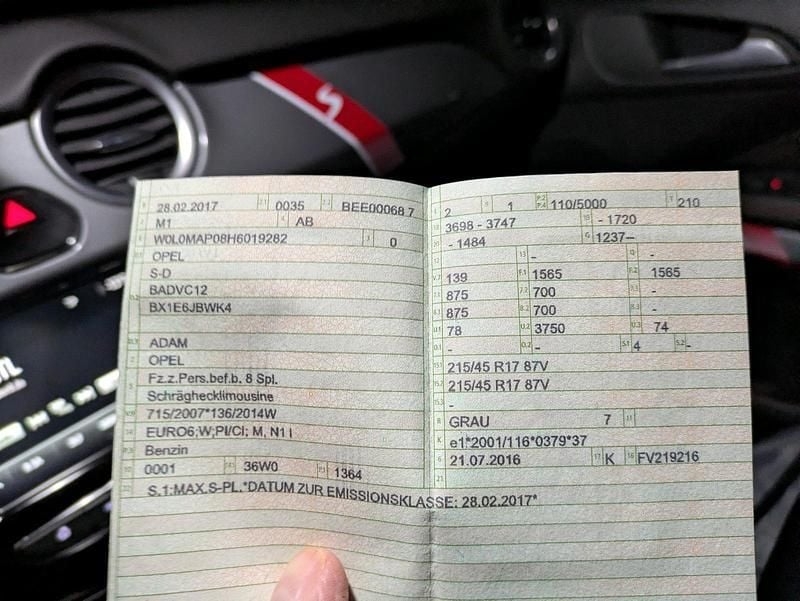 28.02.2017 0035 BEE00068 7
M1 AB
W0L0MAP08H6019282 0
OPEL
S-D
BADVC12
BX1E6JBWK4
ADAM
OPEL
Fz.z.Pers.bef.b. 8 Spl.
Schräghecklimousine
715/2007*136/2014W
EURO6;W;PI/CI; M, N1 I
Benzin
0001 36W0 1364
S.1:MAX.S-PL.*DATUM ZUR EMISSIONSKLASSE: 28.02.2017*
2 1 110/5000 210
3698 - 3747 - 1720
- 1484 1237--
- -
139 1565 1565
875 700 -
875 700 -
78 3750 74
- - 4 -
215/45 R17 87V
215/45 R17 87V
-
GRAU 7
e1*2001/116*0379*37
21.07.2016 K FV219216